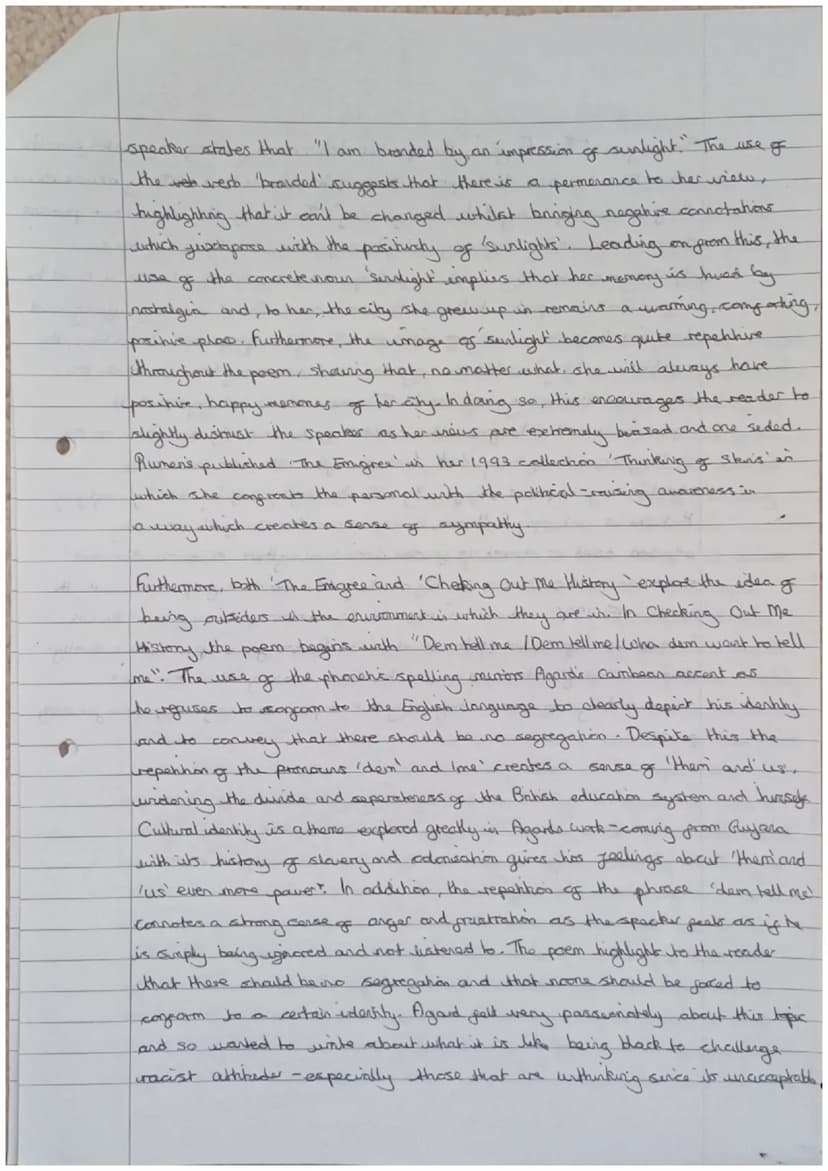 speaker states that "I am branded by an impression of sunlight." The use of
the verb 'branded' suggests that there is a permanance to her view,
highlighting that it can't be changed whilst bringing negative connotations
which juxtapose with the positivity of 'sunlights'. Leading on from this, the
use of the concrete noun 'sunlight' implies that her memory is hued by
nostalgia and, to her, the city she grew up in remains a warming, comforting,
positive place. Furthermore, the image of 'sunlight' becomes quite repetitive
throughout the poem, showing that, no matter what, she will always have
positive, happy memories of her city. In doing so, this encourages the reader to
slightly distrust the speaker as her views are extremely biased and one sided.
Rumen's published 'The Emigree' in her 1993 collection 'Thinking of Skins' in
which she confronts the personal with the political - raising awareness in
a way which creates a sense of sympathy.
Furthermore, both 'The Emigree' and 'Checking Out Me History' explore the idea of
being outsiders in the environment in which they are in. In Checking Out Me
History, the poem begins with "Dem tell me / Dem tell me / Wha dem want to tell
me". The use of the phonetic spelling mirrors Agard's Carribean accent as
he refuses to conform to the English language to clearly depict his identity
and to convey that there should be no segregation. Despite this the
repetition of the pronouns 'dem' and 'me' creates a sense of 'them' and 'us',
widening the divide and separateness of the British education system and himself.
Cultural identity is a theme explored greatly in Agards work - coming from Guyana
with its history of slavery and colonisation gives his feelings about 'them' and
'us' even more power. In addition, the repetition of the phrase 'dem tell me'
connotes a strong sense of anger and frustration as the speaker feels as if he
is simply being ignored and not listened to. The poem highlight to the reader
that there should be no segregation and that noone should be forced to
conform to a certain identity. Agard felt very passionately about this topic
and so wanted to write about what it is like being black to challenge
racist attitudes - especially those that are unthinking since its unacceptable.